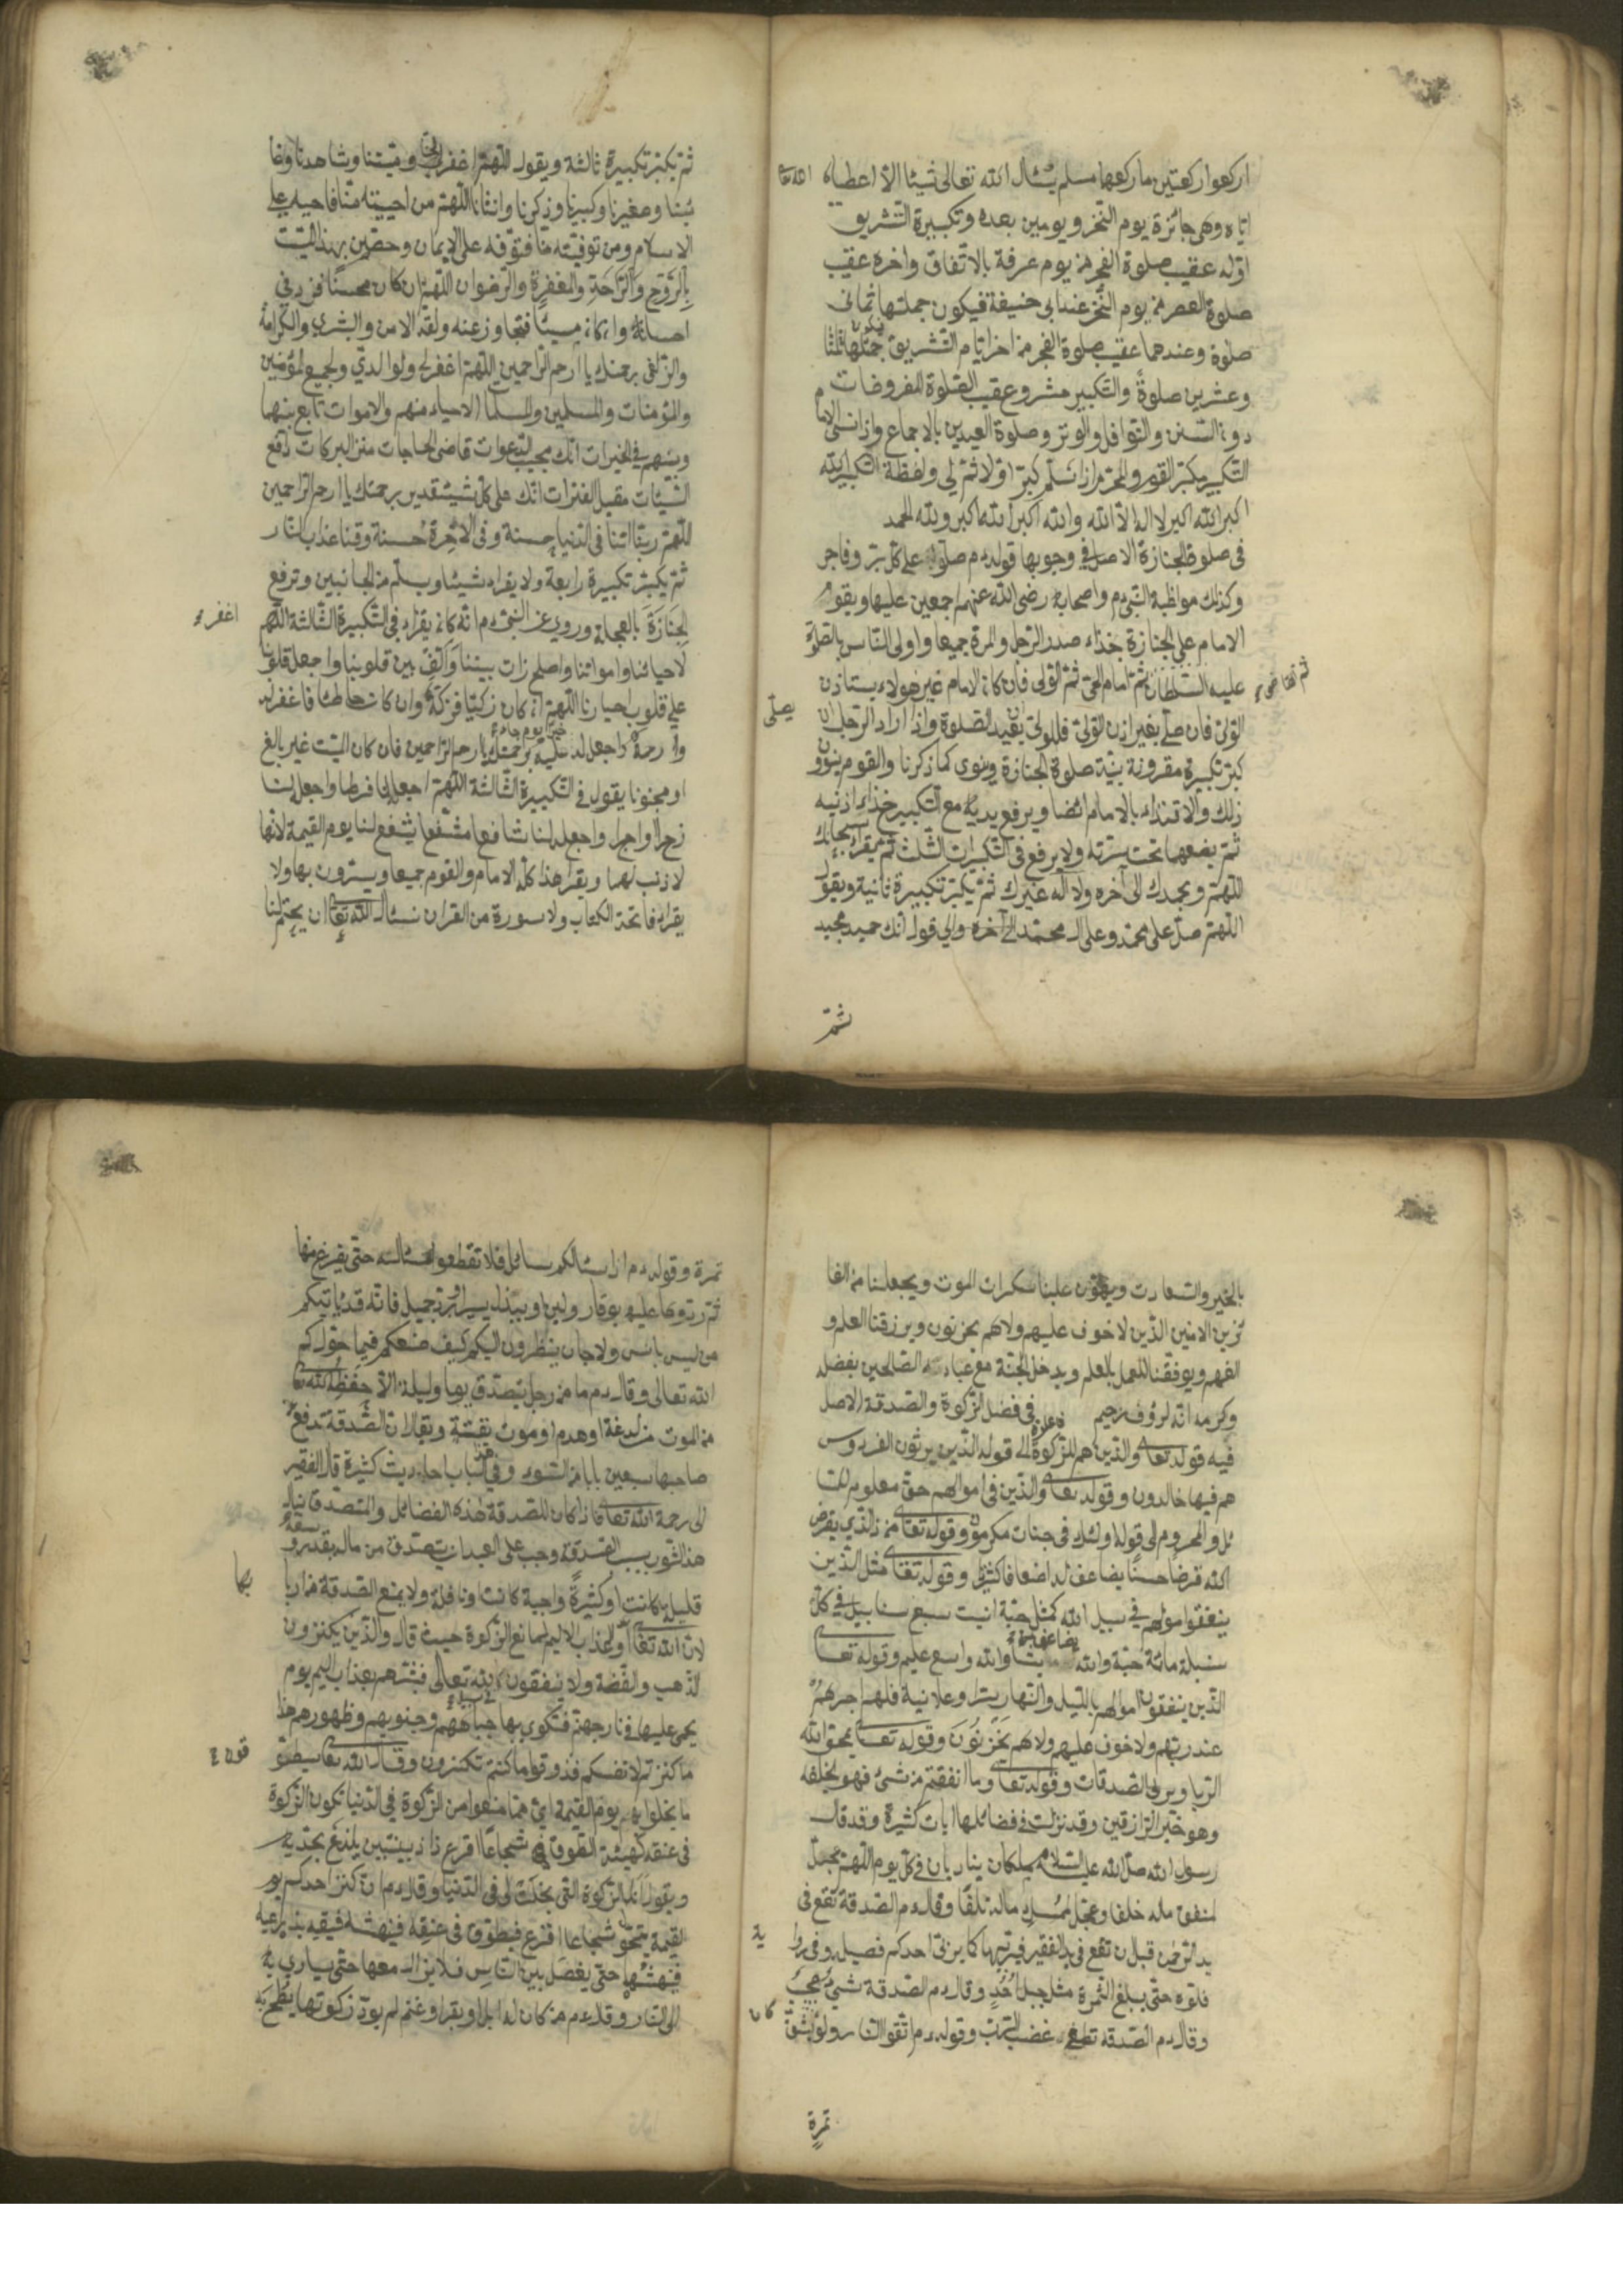 اركعوا ركعتين ما ركعها مسلم يسئال الله تعالى شيئا الا اعطاه
اياه وهى جائزة يوم النحر ويومين بعده وتكبيرة التشريق
اوله عقيب صلوة الفجر من يوم عرفة بالاتفاق واخره عقيب
صلوة العصر من يوم النحر عند ابى حنيفة فيكون جملتها ثمانى
صلوة وعندهما عقيب صلوة الفجر من اخر ايام التشريق جملتها ثلثا
وعشرين صلوة والتكبير مشروع عقيب الصلوة المفروضات
دون السنن والنوافل والوتر وصلوة العيدين بالاجماع واذا نسى الامام
التكبير يكبر القوم والمحرم اذا سلم كبر اولا ثم لبى ولفظة التكبير الله
اكبر الله اكبر لا اله الا الله والله اكبر الله اكبر ولله الحمد
فى صلوة الجنازة الاصل فى وجوبها قوله عم صلوا على كل بر وفاجر
وكذلك مواظبة النبى عم واصحابه رضى الله عنهم اجمعين عليها ويقوم
الامام على الجنازة بحذاء صدر الرجل والمرة جميعا واولى الناس بالصلوة
عليه السلطان ثم امام الحى ثم الولى فان كان الامام غير هولاء يستاذن
الولى فان صلى بغير اذن الولى فللولى ان يعيد الصلوة واذا اراد الرجل ان
يصلى
كبر تكبيرة مقرونة بنية صلوة الجنازة وينوى كما ذكرنا والقوم ينوون
ذلك والاقتداء بالامام ايضا ويرفع يديه مع التكبير حذاء اذنيه
ثم يضعها تحت سرته ولا يرفع فى التكبيرات الثلث ثم يقراء سبحانك
اللهم وبحمدك الى آخره ولا اله غيرك ثم يكبر تكبيرة ثانية ويقول
اللهم صل على محمد وعلى ال محمد الى آخره والى قوله انك حميد مجيد
ثم
ثم يكبر تكبيرة ثالثة ويقول اللهم اغفر لحينا وميتنا وشاهدنا وغا
ئبنا وصغيرنا وكبيرنا وذكرنا وانثانا اللهم من احييته منا فاحيه على
الاسلام ومن توفيته منا فتوفه على الايمان وخص هذا الميت
بالروح والراحة والمغفرة والرضوان اللهم ان كان محسنا فزد فى
احسانه وان كان مسيئا فتجاوز عنه ولقه الامن والبشرى والكرامة
والزلفى برحمتك يا ارحم الراحمين اللهم اغفر لى ولوالدى ولجميع المؤمنين
والمؤمنات والمسلمين والمسلمات الاحياء منهم والاموات تابع بيننا
وبينهم فى الخيرات انك مجيب الدعوات قاضى الحاجات منزل البركات دافع
السيئات مقيل العثرات انك على كل شيئ قدير برحمتك يا ارحم الراحمين
اللهم ربنا اتنا فى الدنيا حسنة وفى الآخرة حسنة وقنا عذاب النار
ثم يكبر تكبيرة رابعة ولا يقراء شيئا ويسلم من الجانبين وترفع
الجنازة بالعجلة وروى عن النبى عم انه كان يقراء فى التكبيرة الثالثة اللهم
اغفر
لاحيائنا وامواتنا واصلح ذات بيننا والف بين قلوبنا واجعل قلوبنا
على قلوب اخيارنا اللهم ان كان زكيا فزكه وان كان خاطئا فاغفر له
وارحمه واجعل له خير يوم جاء عليه برحمتك يا ارحم الراحمين فان كان الميت غير بالغ
او مجنونا يقول فى التكبيرة الثالثة اللهم اجعله لنا فرطا واجعله لنا
ذخرا واجرا واجعله لنا شافعا مشفعا يشفع لنا يوم القيمة لانها
لا ذنب لهما ويقراء هذا كله الامام والقوم جميعا ويسترون بها ولا
يقراء فاتحة الكتاب ولا سورة من القران نسئال الله تعا ان يختم لنا
بالخير والسعادت ويهون علينا سكرات الموت ويجعلنا من الفا
ئزين الامنين الذين لا خوف عليهم ولاهم يحزنون ويرزقنا العلم و
الفهم ويوفقنا للعمل بالعلم ويدخل الجنة مع عباده الصالحين بفضله
وكرمه انه لرؤف رحيم فى فضل الزكوة والصدقة الاصل
فيه قوله تعا والذين هم للزكوة فاعلون الى قوله الذين يرثون الفردوس
هم فيها خالدون وقوله تعا والذين فى اموالهم حق معلوم للسا
ئل والمحروم الى قوله اولئك فى جنات مكرمون وقوله تعا من ذا الذى يقرض
الله قرضا حسنا يضاعف له اضعافا كثيرا وقوله تعا مثل الذين
ينفقون اموالهم فى سبيل الله كمثل حبة انبت سبع سنابيل فى كل
سنبلة مائة حبة والله يضاعف لمن يشا والله واسع عليم وقوله تعا
الذين ينفقون اموالهم بالليل والنهار سرا وعلانية فلهم اجرهم
عند ربهم ولا خوف عليهم ولاهم يحزنون وقوله تعا يمحق الله
الربا ويربى الصدقات وقوله تعا وما انفقتم من شئ فهو يخلفه
وهو خير الرازقين وقد نزلت فى فضائلها ايات كثيرة وقد قال
رسول الله صلى الله عليه السلام ملكان يناديان فى كل يوم اللهم عجل
لمنفق ماله خلفا وعجل لممسك ماله تلفا وقال عم الصدقة تقع فى
يد الرحمن قبل ان تقع فى يد الفقير فيربيها كما يربى احدكم فصيله وفى روا
ية
فلوه حتى يبلغ الثمرة مثل جبل احد وقال عم الصدقة شئ عجيب
وقال عم الصدقة تطفئ غضب الرب وقوله عم اتقوا النار ولو بشق
تمرة
تمرة وقوله عم اذا سئالكم سائل فلا تقطعوا مسئالته حتى يفرغ منها
ثم ردوها عليه بوقار ولين او ببذل يسير او رد جميل فانه قد ياتيكم
من ليس بانس ولا جان ينظرون اليكم كيف صنعكم فيما خولكم
الله تعالى وقال عم ما من رجل يتصدق يوما وليلة الا حفظه الله تعا
من الموت من لدغة او هدم او موت بغتة ويقال ان الصدقة تدفع عن
صاحبها سبعين بابا من السوء وفى هذا الباب احاديث كثيرة قال الفقير
الى رحمة الله تعا فاذا كان للصدقة هذه الفضائل والمتصدق ينال
هذا الثواب بسبب الصدقة وجب على العبد ان يتصدق من ماله بقدر وسعه
قليله كانت او كثيرة واجبة كانت او نافلة ولا يمنع الصدقة من اربا
بها
لان الله تعا اوعد العذاب الاليم لمانع الزكوة حيث قال والذين يكنزون
الذهب والفضة ولا ينفقونها فى سبيل الله تعالى فبشرهم بعذاب اليم يوم
يحمى عليها فى نار جهنم فتكوى بها جباههم وجنوبهم وظهورهم هذا
ما كنزتم لانفسكم فذوقوا ما كنتم تكنزون وقال الله تعا سيطو
قون
ما بخلوا به يوم القيمة اى مما منعوا من الزكوة فى الدنيا تكون الزكوة
فى عنقه كهيئة الطوق شجاعا اقرع ذا زبيبتين يلدغ بخديه
ويقول انا الزكوة التى بخلت لى فى الدنيا وقال عم ان كنز احدكم يوم
القيمة يتحول شجاعا اقرع فيطوق فى عنقه فينهشه فيقيه بذراعيه
فينهشها حتى يفصل بين الناس فلا يزال معها حتى يسارى به
الى النار وقال عم من كان له ابل او بقر او غنم لم يود زكوتها يطح به